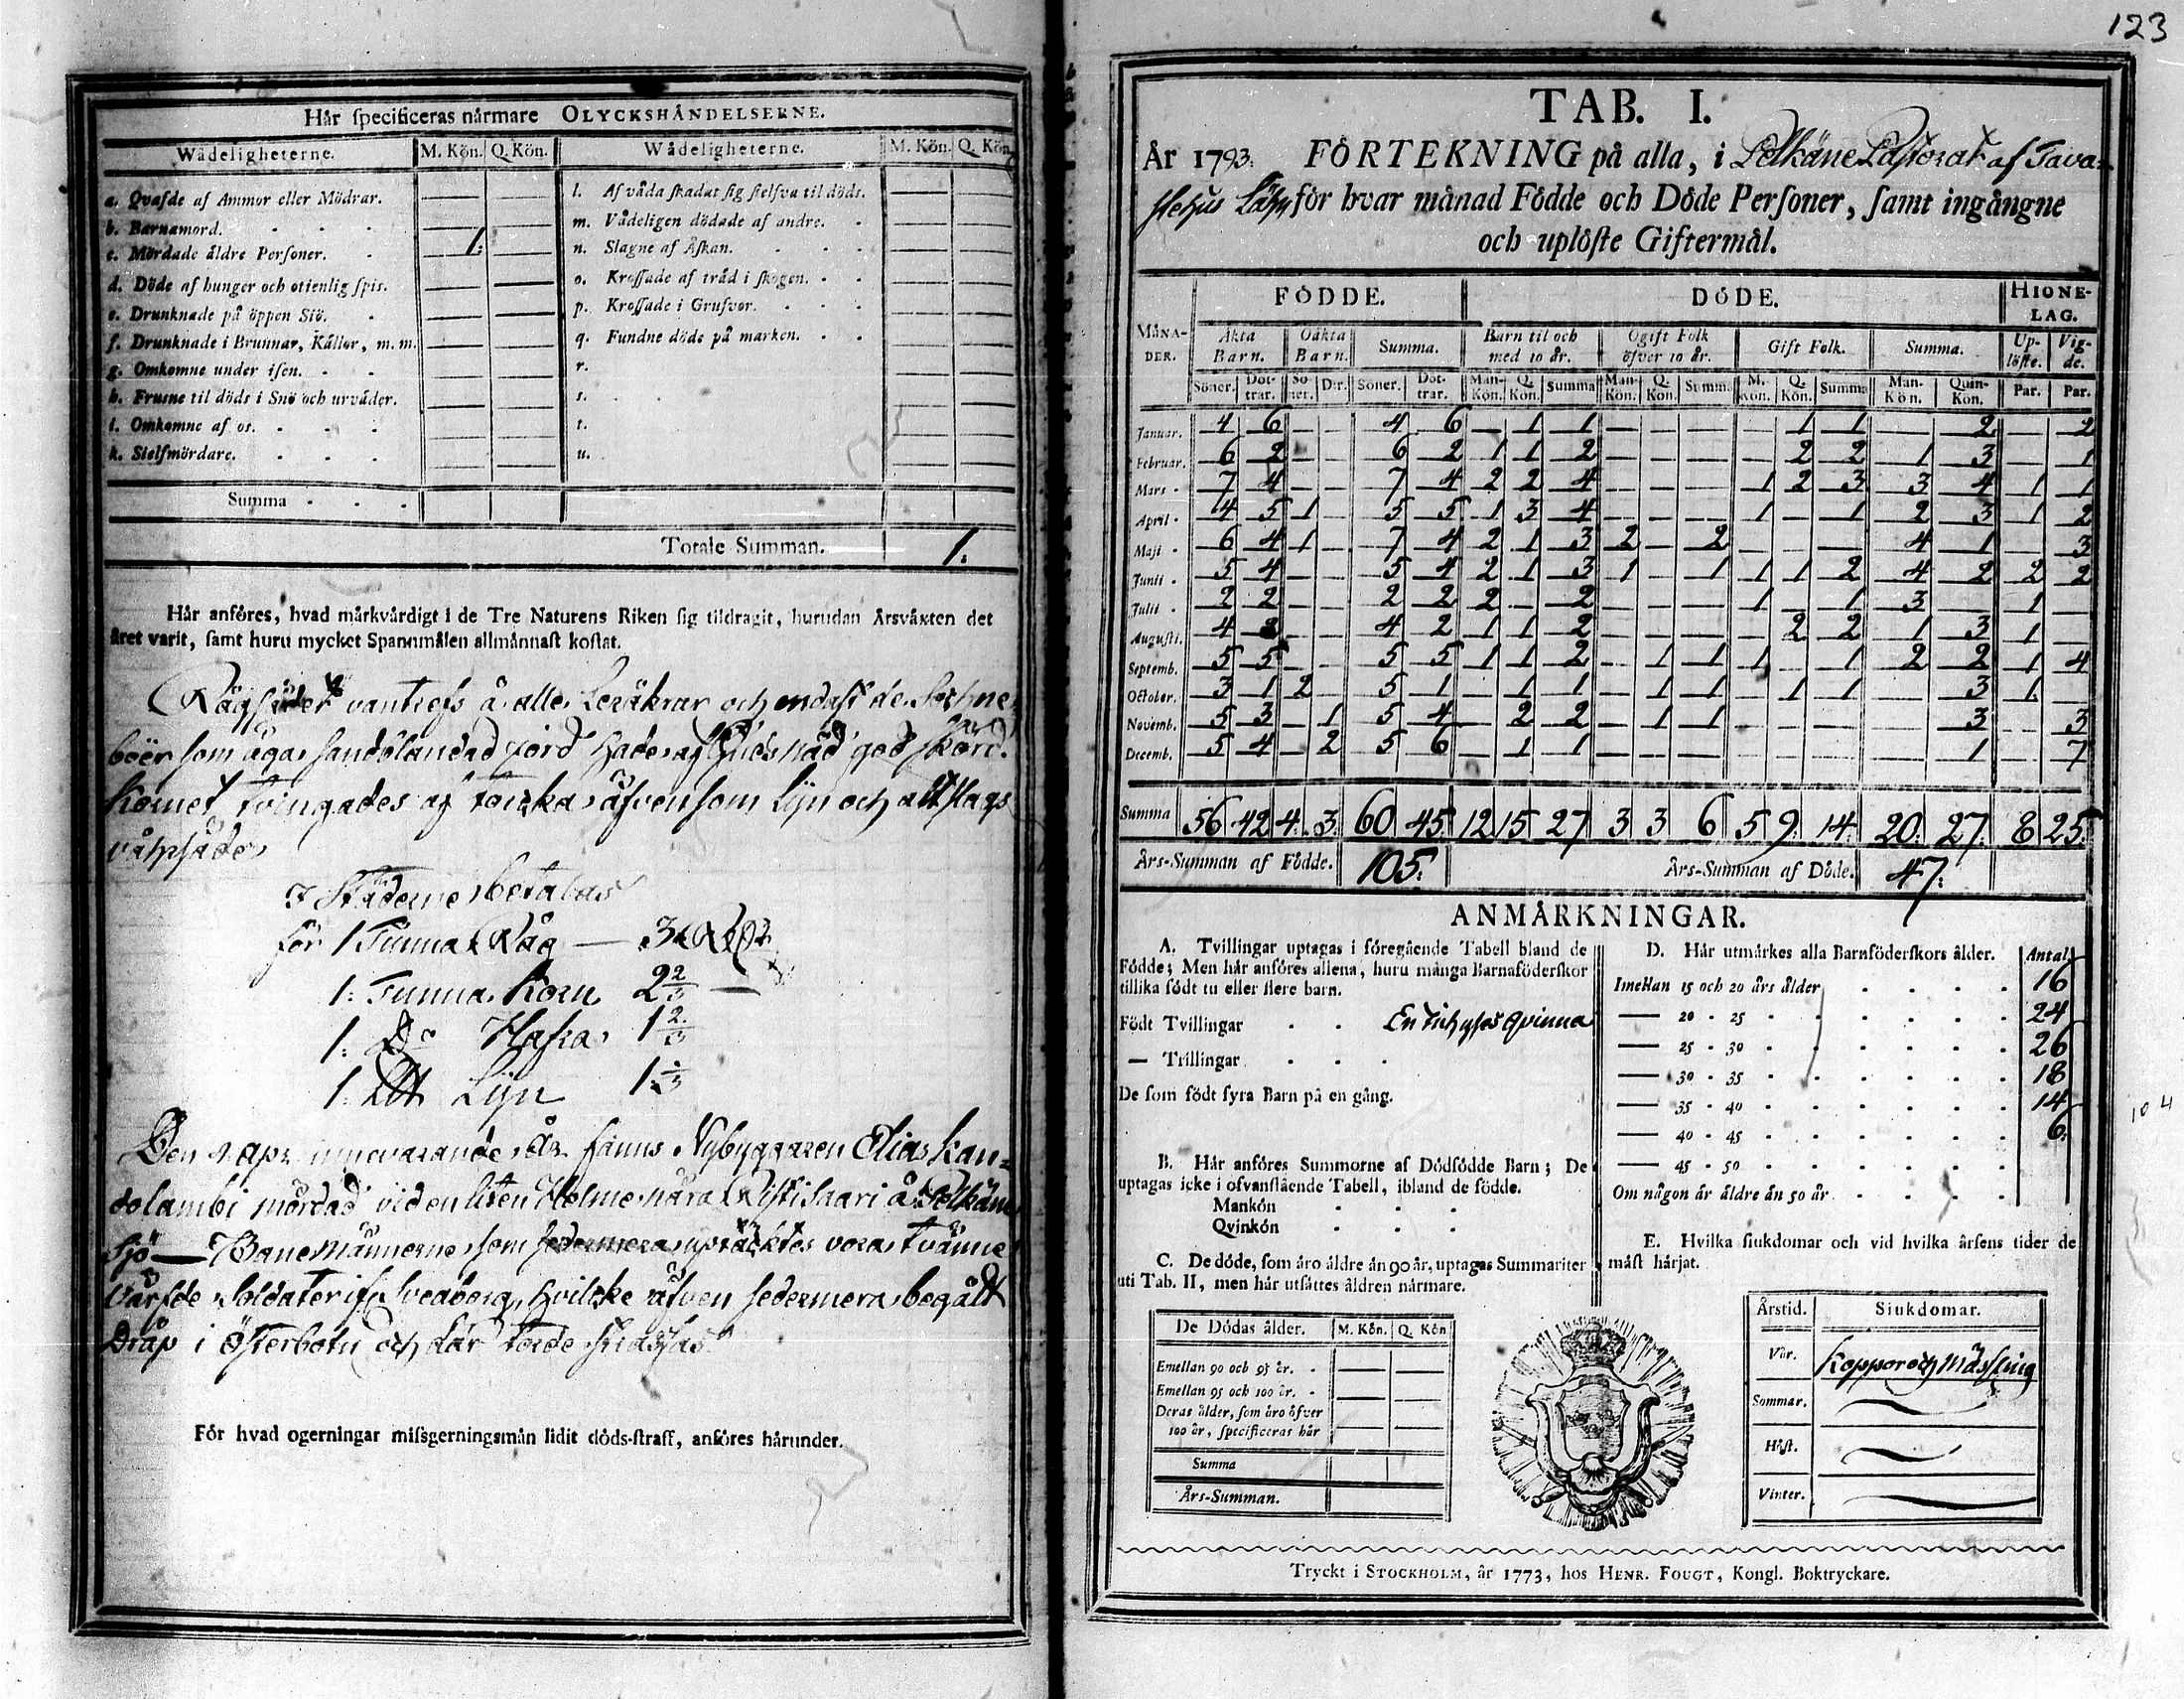 123
Hår specificeras nårmare OLYCKSHÅNDELSERNE.
Wådeligheterne. M. Kön. Q. Kön. Wådeligheterne. M. Kön. Q. Kön.
a. Qvafde af Ammor eller Mödrar. — —
b. Barnamord. — —
c. Mördade åldre Personer. 1. —
d. Döde af hunger och otienlig spis. — —
e. Drunknade på öppen Siö. — —
f. Drunknade i Brunnar, Kållor, m. m. — —
g. Omkomne under isen. — —
h. Frusne til döds i Snö och urvåder. — —
i. Omkomne af os. — —
k. Sielfmördare. — —
l. Af våda skadat sig sielfva til döds. — —
m. Vådeligen dödade af andre. — —
n. Slagne af Åskan. — —
o. Krossade af tråd i skogen. — —
p. Krossade i Grufvor. — —
q. Fundne döde på marken. — —
r.
s.
t.
u.
Summa
Totale Summan. 1.
Hår anföres, hvad mårkvårdigt i de Tre Naturens Riken sig tildragit, hurudan Årsvåxten det
året varit, samt huru mycket Spannmålen allmånnast kostat.
Rågsädet vantrefs å alle Leråkrar och endast de Sochne
boer som äga sandblandad jord hade af Guds nåd god skörd.
Kornet tvingades af torcka äfvensom Lijn och alt slags
vårsäde
I Städerne betalas
för 1 Tunna Råg — 3
1: Tunna Korn 2 2/3 —
1: Do Hafra 1 2/3
1: Lijn
Den 2 apr. innevarande år fanns Nybyggaren Elias Kan-
dolambi mördad vid en liten Holme nära Ristisaari å Pelkäne
Sjö — Banemännerne som sedermera uptäcktes vora tvänne
Värfde Soldater ifr Sveaborg, hvilcke äfven sedermera begådt
Dråp i Österbotn och där torde straffas.
För hvad ogerningar missgerningsmån lidit döds-straff, anföres hårunder.
TAB. I.
År 1793. FÖRTEKNING på alla, i Pelkäne Pastorat af Tava-
stehus Lähn för hvar månad Födde och Döde Personer, samt ingångne
och uplöste Giftermål.
FÖDDE. DÖDE. HIONE-LAG.
MÅNA-DER. Åkta Barn. Oåkta Barn. Summa. Barn til och med 10 år. Ogift Folk öfver 10 år. Gift Folk. Summa. Up-löste. Vig-de.
Söner. Döt-trar. Sö-ner. Dtr. Söner. Döt-trar. Man-Kön. Q. Kön. Summa Man-Kön. Q. Kön. Summa M. Kön. Q. Kön. Summa Man-Kön. Quin-Kön. Par. Par.
Januar. 4 6 — — 4 6 — 1 1 — — — 1 1 — 2 — 2
Februar. 6 2 — — 6 2 1 1 2 — — — 2 2 1 3 — 1
Mars 7 4 — — 7 4 2 2 4 — — — 1 2 3 3 4 1 1
April 4 5 1 — 5 5 1 3 4 — — — 1 — 1 2 3 1 2
Maji 6 4 1 — 7 4 2 1 3 2 — 2 — — — 4 1 — 3
Junii 5 4 — — 5 4 2 1 3 1 — 1 1 1 2 4 2 2 2
Julii 2 2 — — 2 2 2 — 2 — — — 1 — 1 3 — 1 —
Augusti. 4 2 — — 4 2 1 1 2 — — — 2 2 1 3 1 —
Septemb. 5 5 — — 5 5 1 1 2 — 1 1 1 — 1 2 2 1 4
October. 3 1 2 — 5 1 — 1 1 — 1 1 — 1 1 — 3 1 —
Novemb. 5 3 — 1 5 4 — 2 2 — 1 1 — — — — 3 — 3
Decemb. 5 4 — 2 5 6 — 1 1 — — — — — — — 1 — 7
Summa 56 42 4 3 60 45 12 15 27 3 3 6 5 9 14 20 27 8 25
Års-Summan af Födde. 105. Års-Summan af Döde. 47.
ANMÅRKNINGAR.
A. Tvillingar uptagas i föregående Tabell bland de
Födde; Men hår anföres allena, huru många Barnaföderskor
tillika födt tu eller flere barn.
Födt Tvillingar qvinna
— Trillingar
De som födt fyra Barn på en gång.
B. Hår anföres Summorne af Dödfödde Barn; De
uptagas icke i ofvanstående Tabell, ibland de födde.
Mankön
Qvinkön
C. De döde, som åro åldre ån 90 år, uptagas Summariter
uti Tab. II, men hår utsåttes åldren nårmare.
De Dödas ålder. M. Kön. Q. Kön
Emellan 90 och 95 år. — —
Emellan 95 och 100 år. — —
Deras ålder, som åro öfver
100 år, specificeras hår
Summa
Års-Summan.
D. Hår utmårkes alla Barnföderskors ålder. Antal
Imellan 15 och 20 års ålder 16
— 20 - 25 24
— 25 - 30 26
— 30 - 35 18
— 35 - 40 14
— 40 - 45 6.
— 45 - 50
Om någon år åldre ån 50 år
104
E. Hvilka siukdomar och vid hvilka årsens tider de
måst hårjat.
Årstid. Siukdomar.
Vår. Koppor och Mässling
Sommar.
Höst.
Vinter.
Tryckt i STOCKHOLM, år 1773, hos HENR. FOUGT, Kongl. Boktryckare.